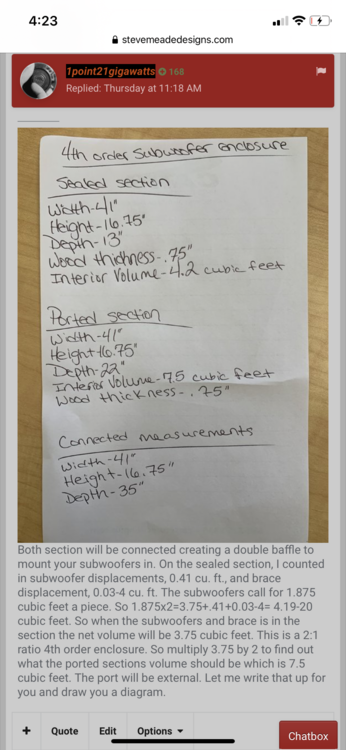 4:23
stevemeadedesigns.com
1point21gigawatts 168
Replied: Thursday at 11:18 AM
4th order subwoofer enclosure
Sealed section
Width-41"
Height-16.75"
Depth-13"
Wood thickness-.75"
Interior Volume-4.2 cubic feet
Ported section
Width-41"
Height-16.75"
Depth-22"
Interior Volume-7.5 cubic feet
Wood thickness-.75"
Connected measurements
Width-41"
Height-16.75"
Depth-35"
Both section will be connected creating a double baffle to
mount your subwoofers in. On the sealed section, I counted
in subwoofer displacements, 0.41 cu. ft., and brace
displacement, 0.03-4 cu. ft. The subwoofers call for 1.875
cubic feet a piece. So 1.875x2=3.75+.41+0.03-4= 4.19-20
cubic feet. So when the subwoofers and brace is in the
section the net volume will be 3.75 cubic feet. This is a 2:1
ratio 4th order enclosure. So multiply 3.75 by 2 to find out
what the ported sections volume should be which is 7.5
cubic feet. The port will be external. Let me write that up for
you and draw you a diagram.
+ Quote Edit Options
Chatbox